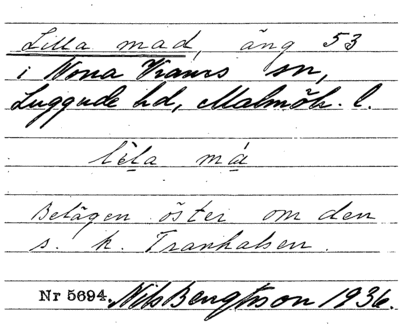 Lilla mad, äng 53
i Nona Kvaurs sn,
Luggude hd, Malmöh. l.
lèla má
Belägen öster om den
s. k. Tranhalsen.
Nr 5694. Nils Bengtsson 1936.